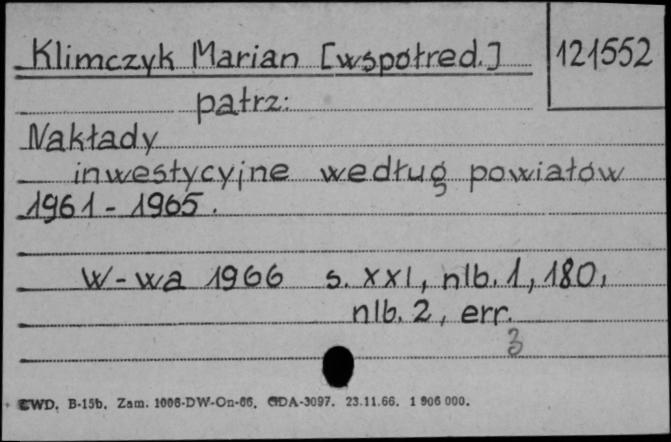 Klimczyk Marian [współred.] 121552
patrz:
Nakłady
inwestycyjne według powiatów
1961-1965.
W-wa 1966 s. XXI, nlb. 1, 180,
nlb. 2, err.
3
CWD. B-15b. Zam. 1006-DW-On-66. GDA-3097. 23.11.66. 1 906 000.